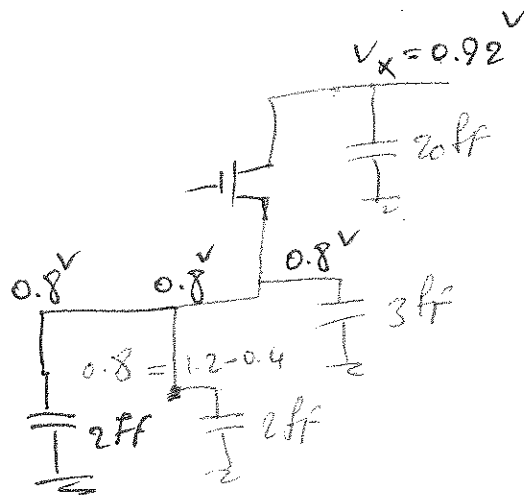 V_x = 0.92 V
20 fF
0.8 V
0.8 V
0.8 V
3 fF
0.8 = 1.2-0.4
2 fF
2 fF